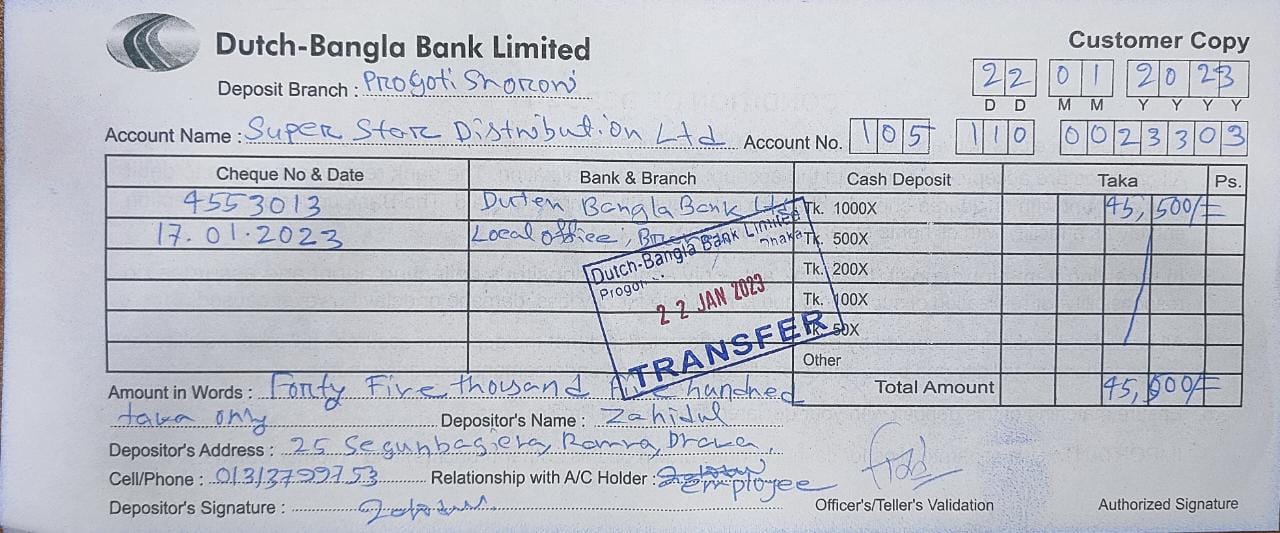 Dutch-Bangla Bank Limited
Customer Copy
Deposit Branch : Progoti Shoroni
22 01 2023
D D M M Y Y Y Y
Account Name : Super Star Distribution Ltd Account No. 105 110 0023303
Cheque No & Date Bank & Branch Cash Deposit Taka Ps.
4553013 Dutch Bangla Bank Ltd Tk. 1000X 45,500/=
17.01.2023 Local office, Tk. 500X
Dutch-Bangla Bank Limited
Dhaka
Progoti
22 JAN 2023
TRANSFER
Tk. 200X
Tk. 100X
Tk. 50X
Other
Amount in Words : Forty Five thousand Five hundred Total Amount 45,500/=
taka only Depositor's Name : Zahidul
Depositor's Address : 25 Segunbagicha, Ramna, Dhaka,
Cell/Phone : Relationship with A/C Holder : employee
Depositor's Signature :
Officer's/Teller's Validation Authorized Signature